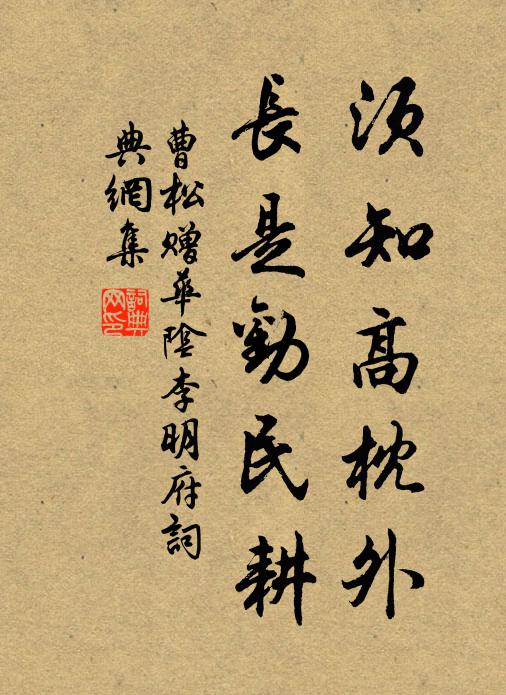 須知高枕外
長是勸民耕
曹松贈華陰李明府詞
典網集
詞典網印